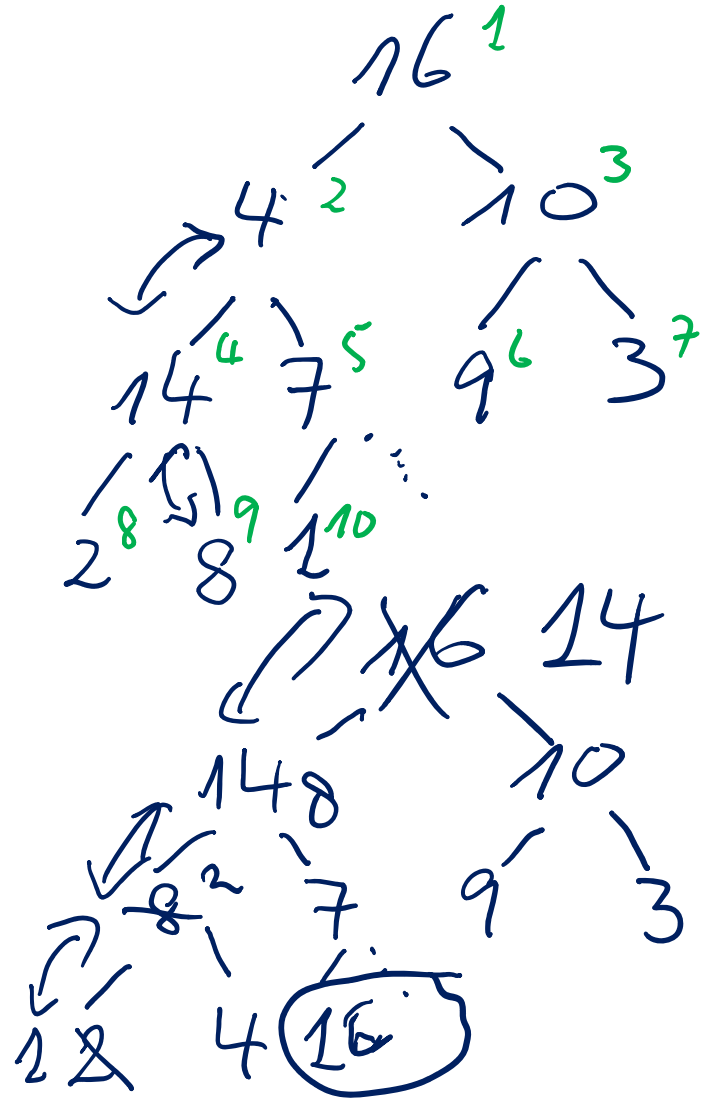 16 1
4 2 10 3
14 4 7 5 9 6 3 7
2 8 8 9 1 10
16 14
14 8 10
8 2 7 9 3
1 2 4 16